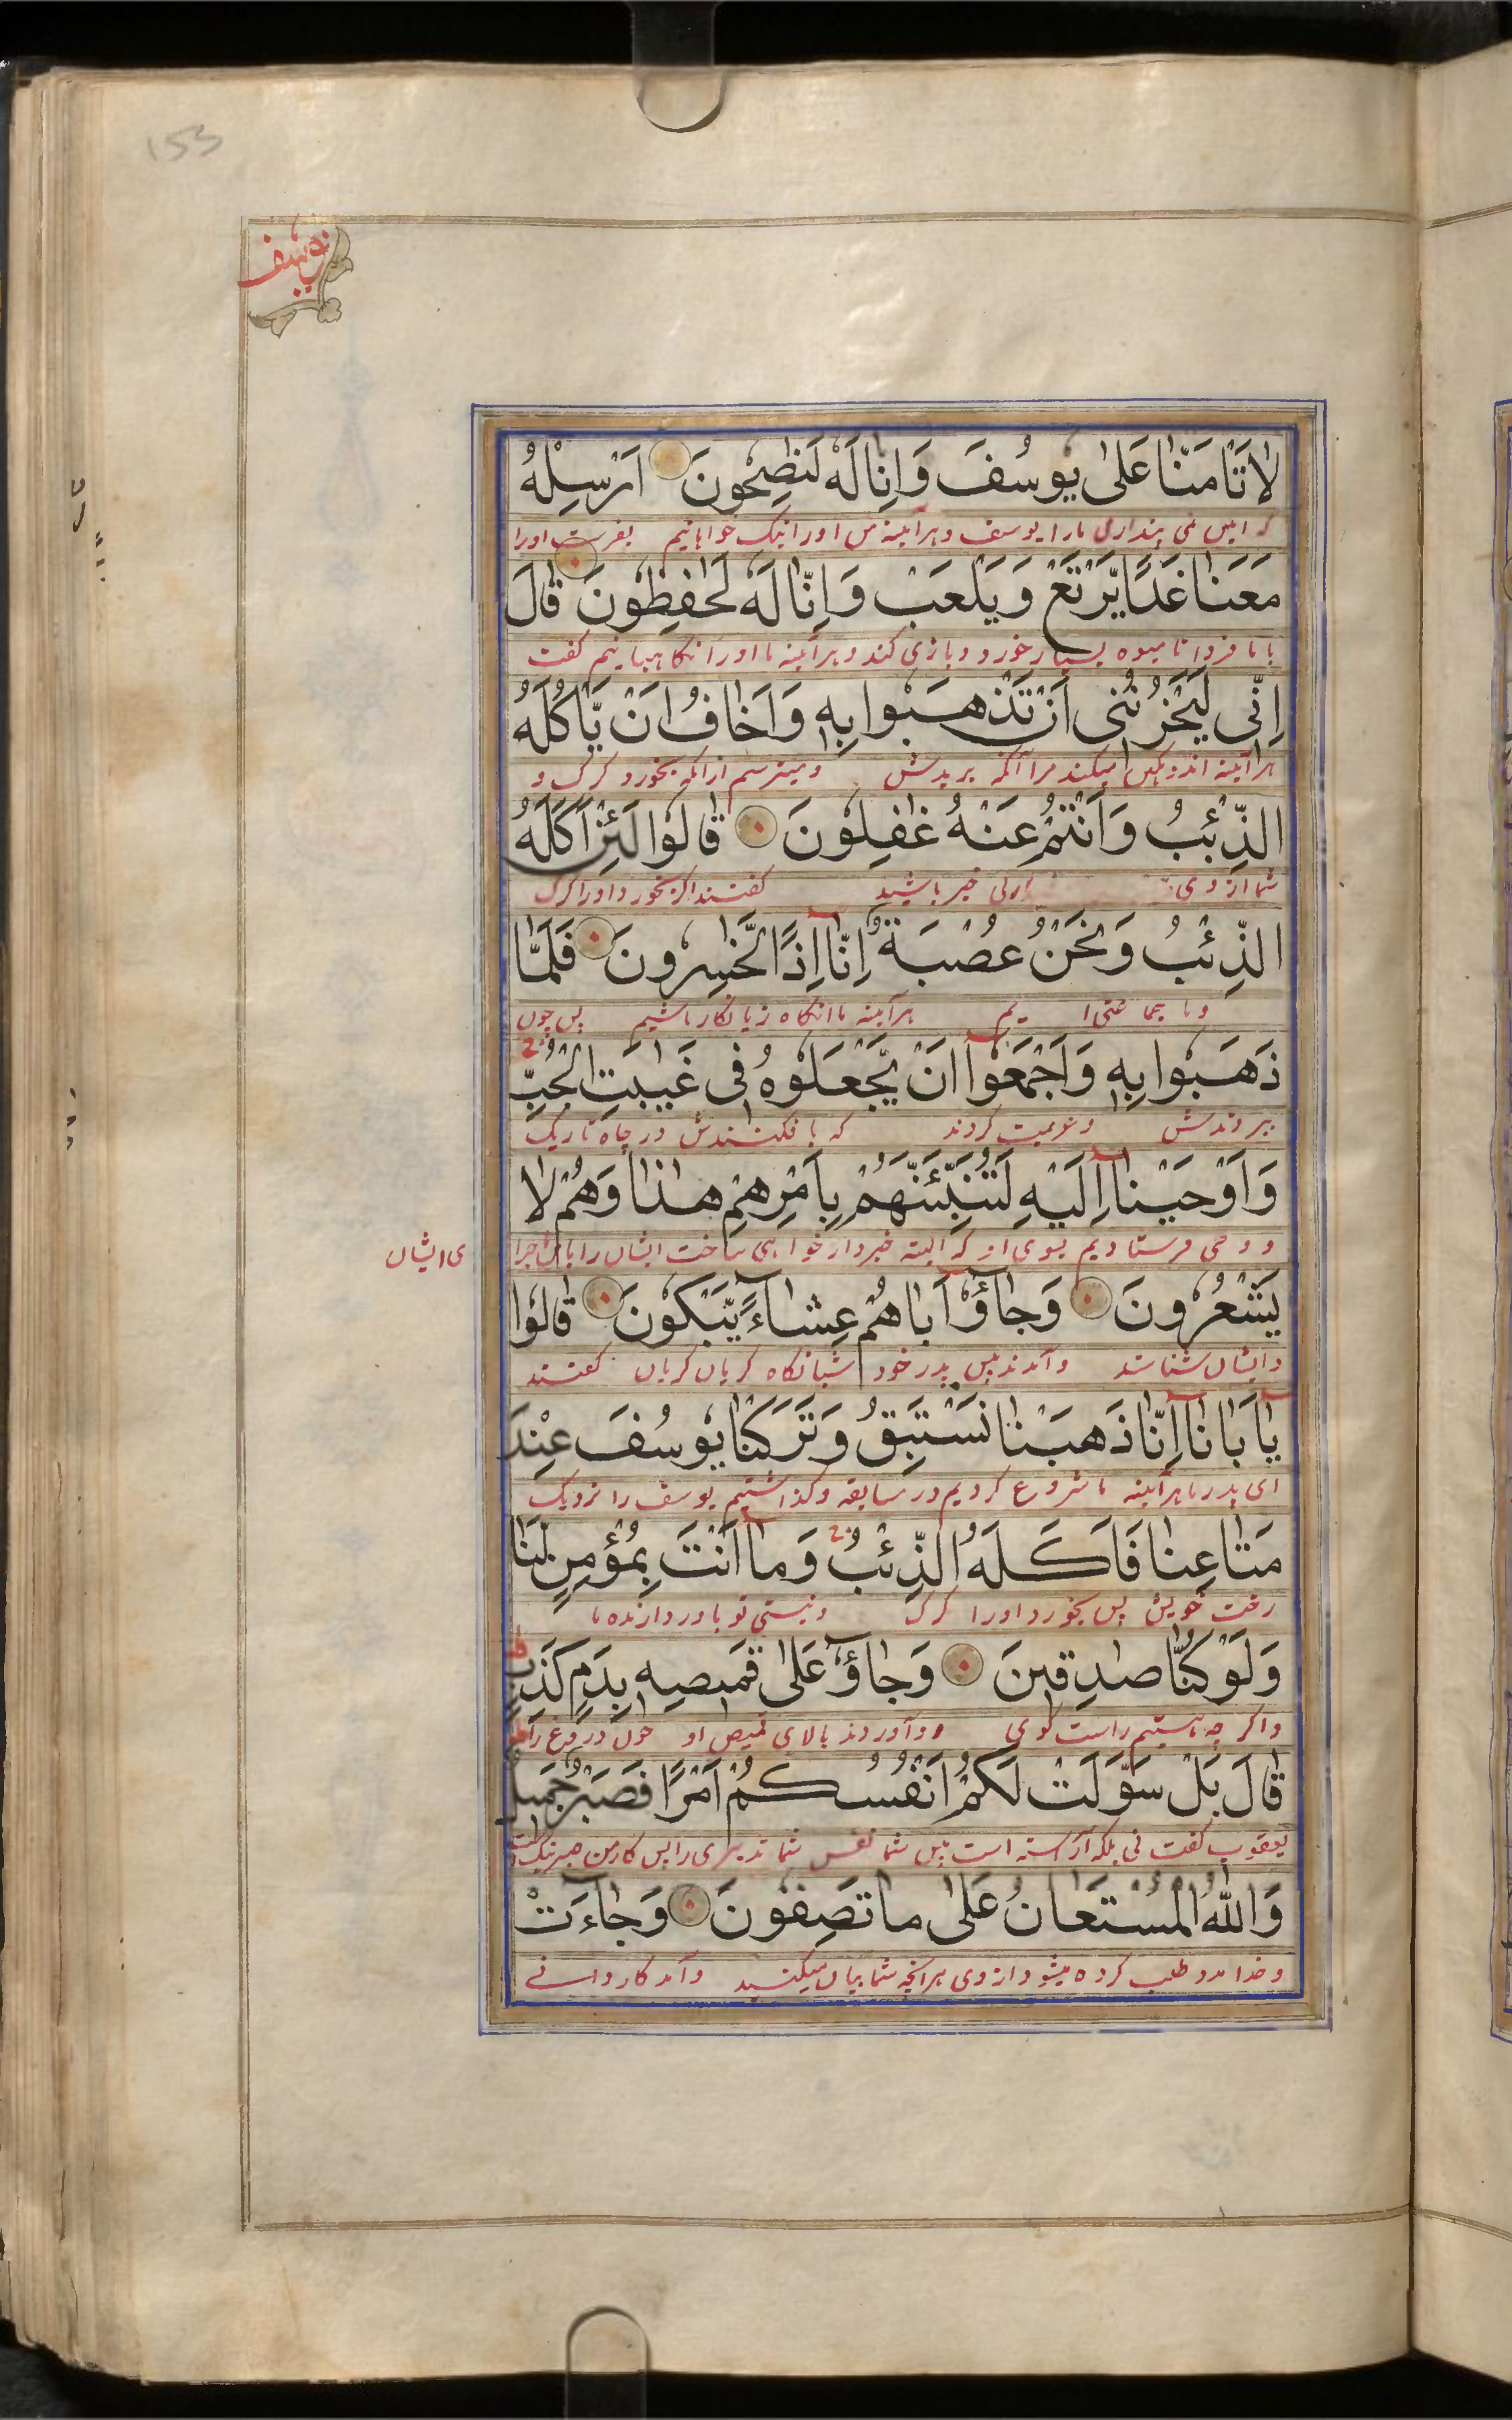 153
يوسف
لا تَأمَنّا عَلىٰ يوسُفَ وَاِنّا لَهُ لَنٰصِحُونَ اَرسِلهُ
که ایمن نمی پنداری ما را بر یوسف و هرآیینه من او را نیک خواهانیم بفرست او را
مَعَنا غَدًا يَّرتَع وَيَلعَب وَاِنّا لَهُ لَحٰفِظُونَ قالَ
با ما فردا تا میوه بسیار خورد و بازی کند و هرآیینه ما او را نگاهبانیم گفت
اِنّى لَيَحزُنُنى اَن تَذهَبوا بِهٖ وَاَخافُ اَن يَّاكُلَهُ
هرآیینه اندوهگین میکند مرا آنکه ببریدش و میترسم از انکه بخورد گرگ و
الذِّئبُ وَاَنتُم عَنهُ غٰفِلُونَ قالُوا لَئِن اَكَلَهُ
شما از وی بی خبر باشید گفتند اگر بخورد او را گرگ
الذِّئبُ وَنَحنُ عُصبَةٌ اِنّا اِذًا لَّخٰسِرونَ فَلَمّا
و ما جماعتی ا یم هرآیینه ما انگاه زیانکار باشیم پس چون
ذَهَبوا بِهٖ وَاَجمَعُوا اَن يَّجعَلوهُ فى غَيٰبَتِ الجُبِّ
ببردندش و عزمیت کردند که بافکنندش در چاه تاریک
وَاَوحَينا اِلَيهِ لَتُنَبِّئَنَّهُم بِاَمرِهِم هٰذا وَهُم لا
و وحی فرستادیم بسوی او که البته خبردار خواهی ساخت ایشان را باین ماجرا
ی ایشان
يَشعُرونَ وَجاؤُ اَباهُم عِشاءً يَّبكونَ قالُوا
و ایشان نشناسند و آمدند پیش پدر خود شبانگاه گریان گریان گفتند
يا اَبانا اِنّا ذَهَبنا نَستَبِقُ وَتَرَكنا يوسُفَ عِندَ
ای پدر ما هرآیینه ما شروع کردیم در مسابقه و گذاشتیم یوسف را نزدیک
مَتاعِنا فَاَكَلَهُ الذِّئبُ وَما اَنتَ بِمُؤمِنٍ لَّنا
رخت خویش پس بخورد او را گرگ و نیستی تو باور دارنده ما
وَلَو كُنّا صٰدِقينَ وَجاؤُ عَلىٰ قَميصِهٖ بِدَمٍ كَذِبٍ
و اگر چه هستیم راست گوی و آوردند بالای قمیص او خون دروغ را
قالَ بَل سَوَّلَت لَكُم اَنفُسُكُم اَمرًا فَصَبرٌ جَميلٌ
یعقوب گفت نی بلکه آراسته است پیش شما نفس شما تدبیری را پس کار من صبر نیک است
وَاللّٰهُ المُستَعانُ عَلىٰ ما تَصِفُونَ وَجاءَت
و خدا مدد طلب کرده میشود از وی بر انچه شما بیان میکنید و آمد کاروانے